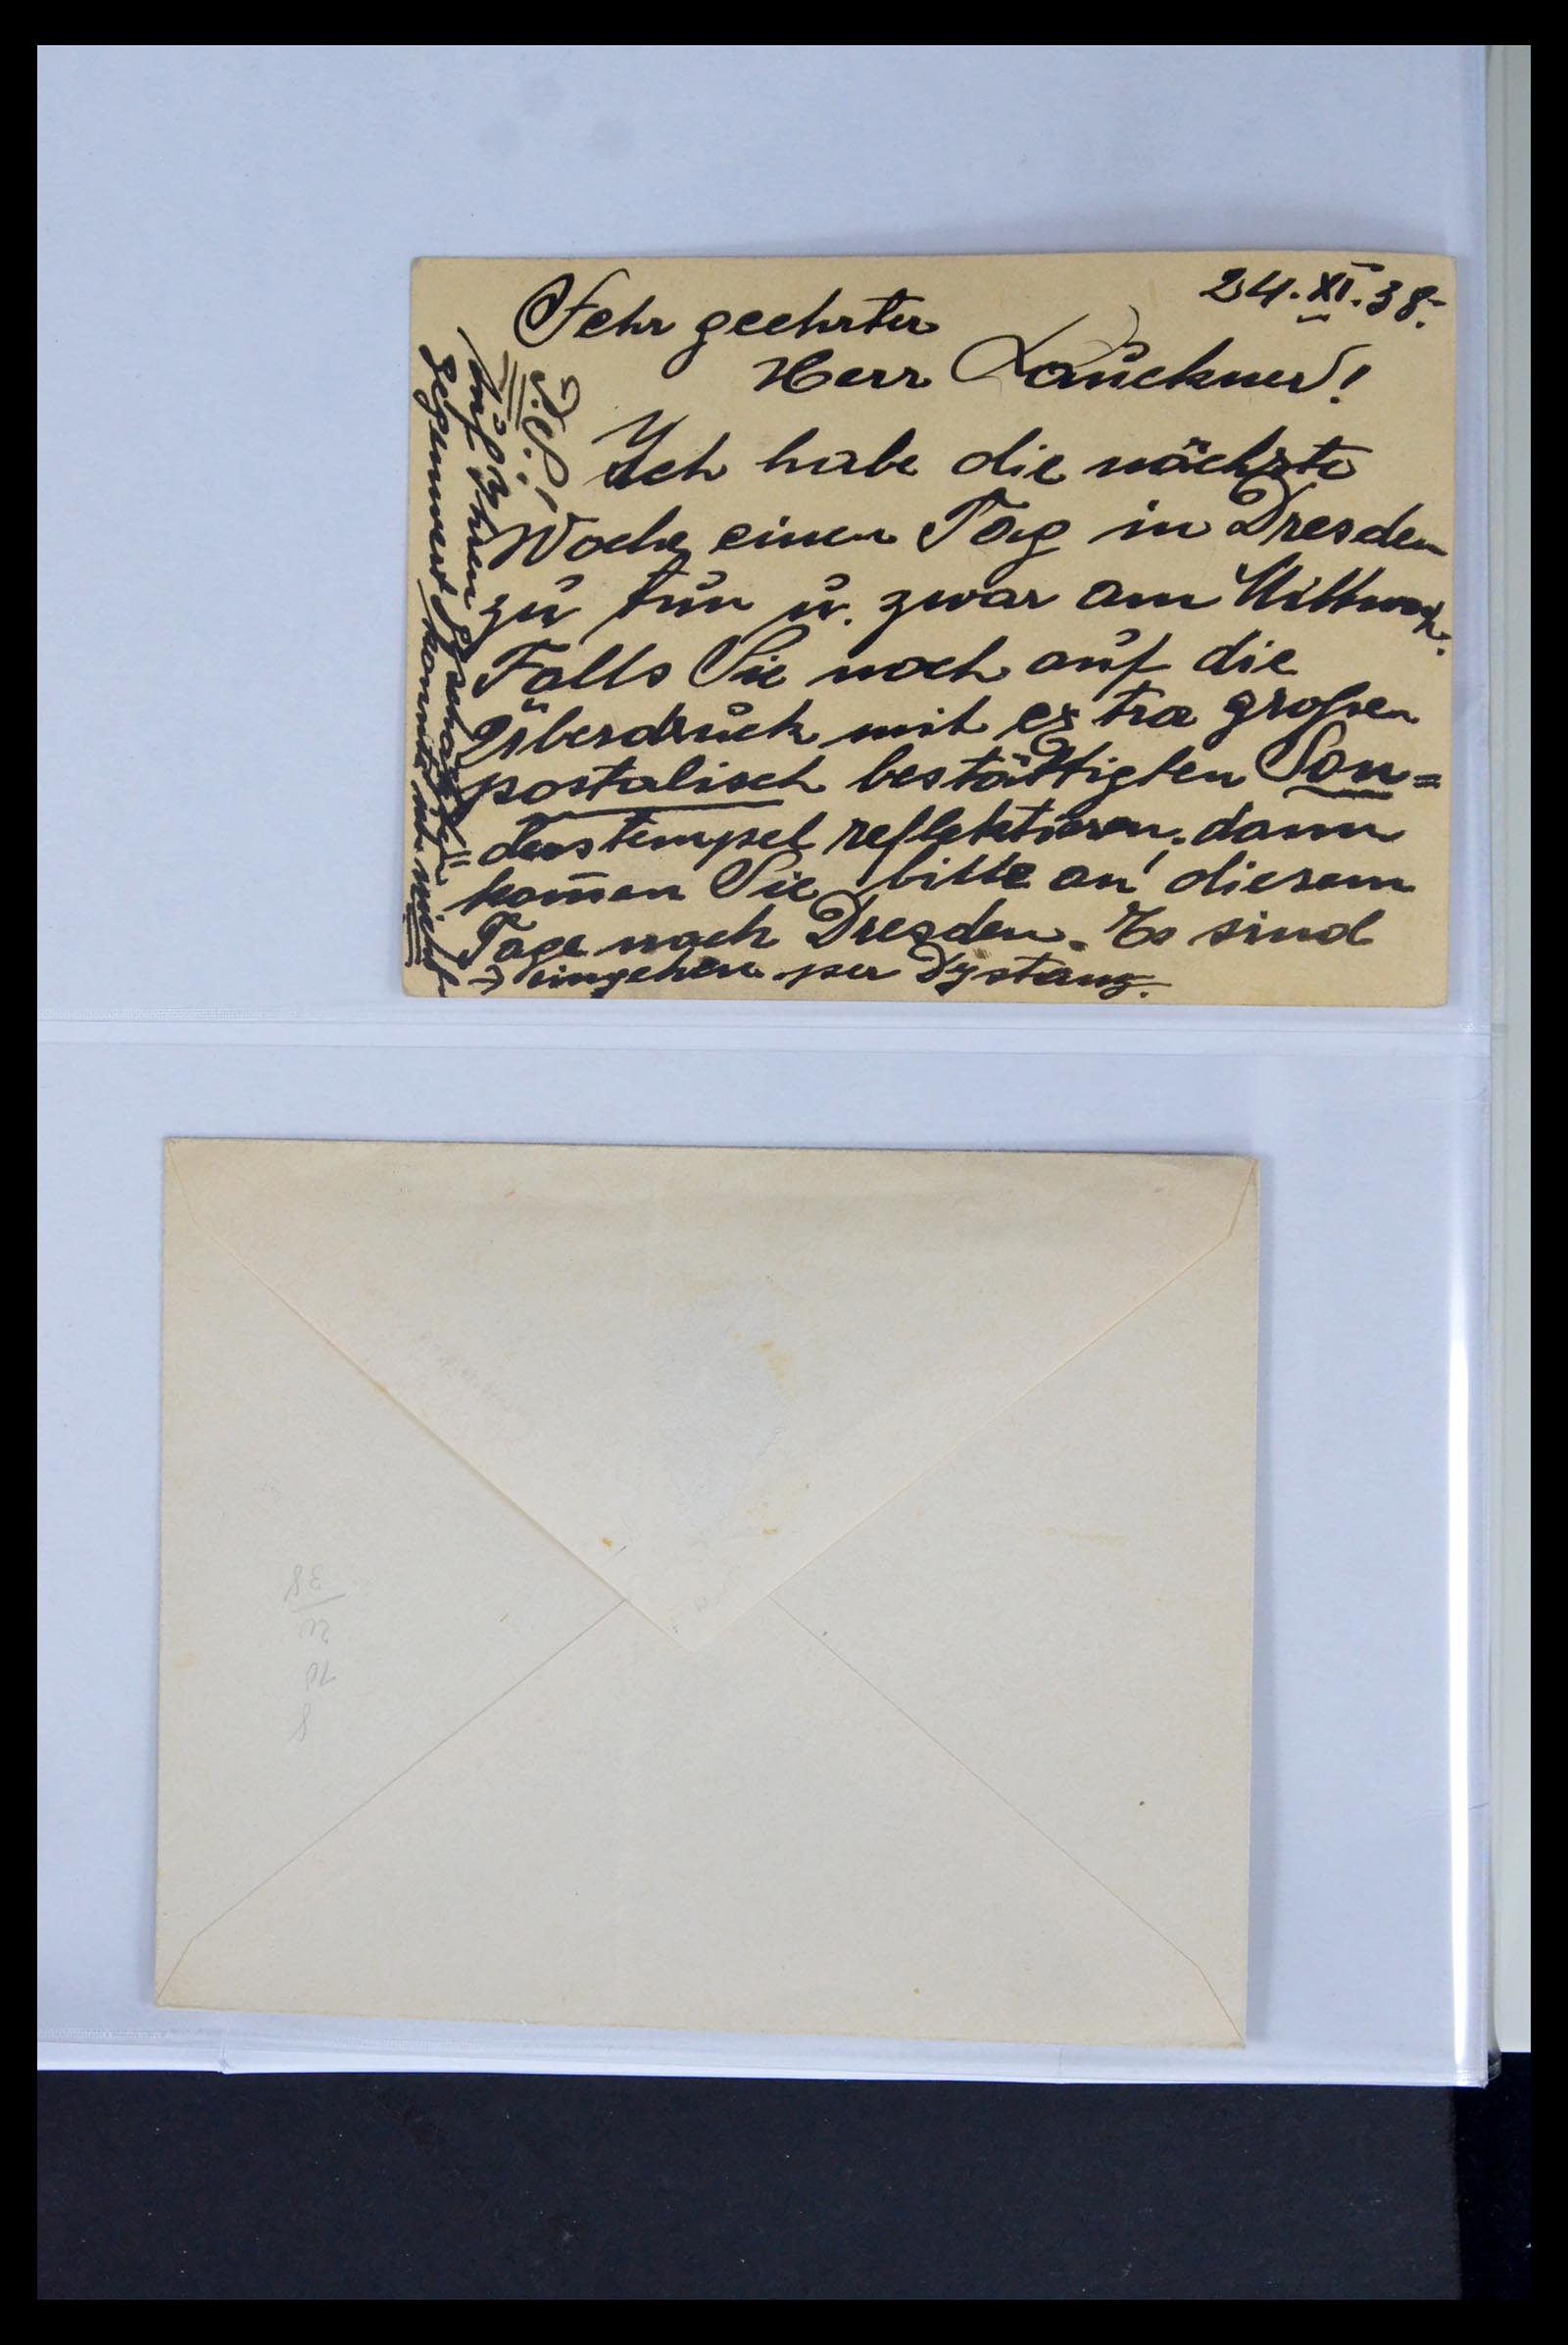 24.XI.38.
Sehr geehrter
Herr Lauckner!
Ich habe die nächste
Woche einen Tag in Dresden
zu tun u. zwar am Mittwoch.
Falls Sie noch auf die
Überdruck mit extra großen
postalisch bestättigten Son=
derstempel reflektieren, dann
kom̄en Sie bitte an diesem
Tage nach Dresden. Es sind
P.S.!
Auf Ihren
gegenwert konnte ich nicht
→ eingehen per Dystanz.
38
22
10
8